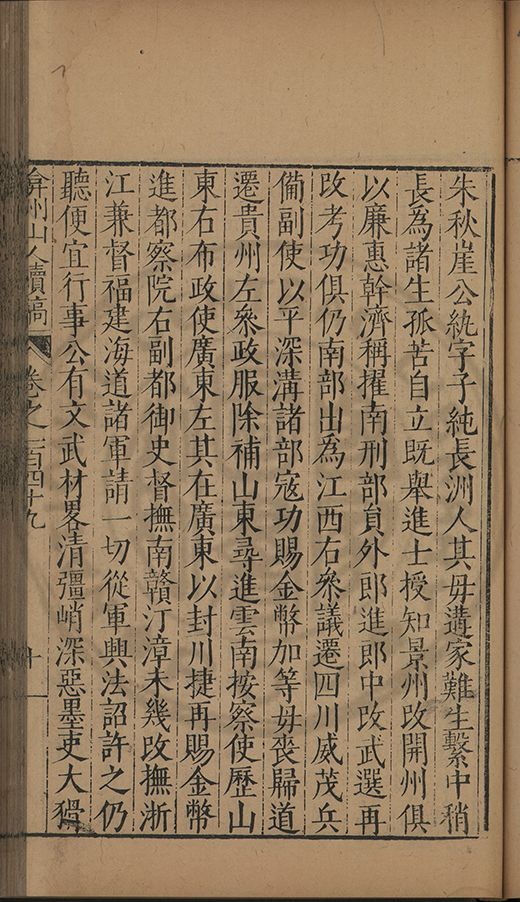 朱秋崖公紈字子純長洲人其母遘家難生繫中稍
長為諸生孤苦自立既舉進士授知景州改開州俱
以廉惠幹濟稱擢南刑部員外郎進郎中改武選再
改考功俱仍南部出為江西右叅議遷四川威茂兵
備副使以平深溝諸部寇功賜金幣加等毋喪歸道
遷貴州左叅政服除補山東尋進雲南按察使歷山
東右布政使廣東左其在廣東以封川捷再賜金幣
進都察院右副都御史督撫南贛汀漳未幾改撫浙
江兼督福建海道諸軍請一切從軍興法詔許之仍
聽便宜行事公有文武材畧清彊峭深惡墨吏大猾
弇州山人續稿 卷之一百四十九 十